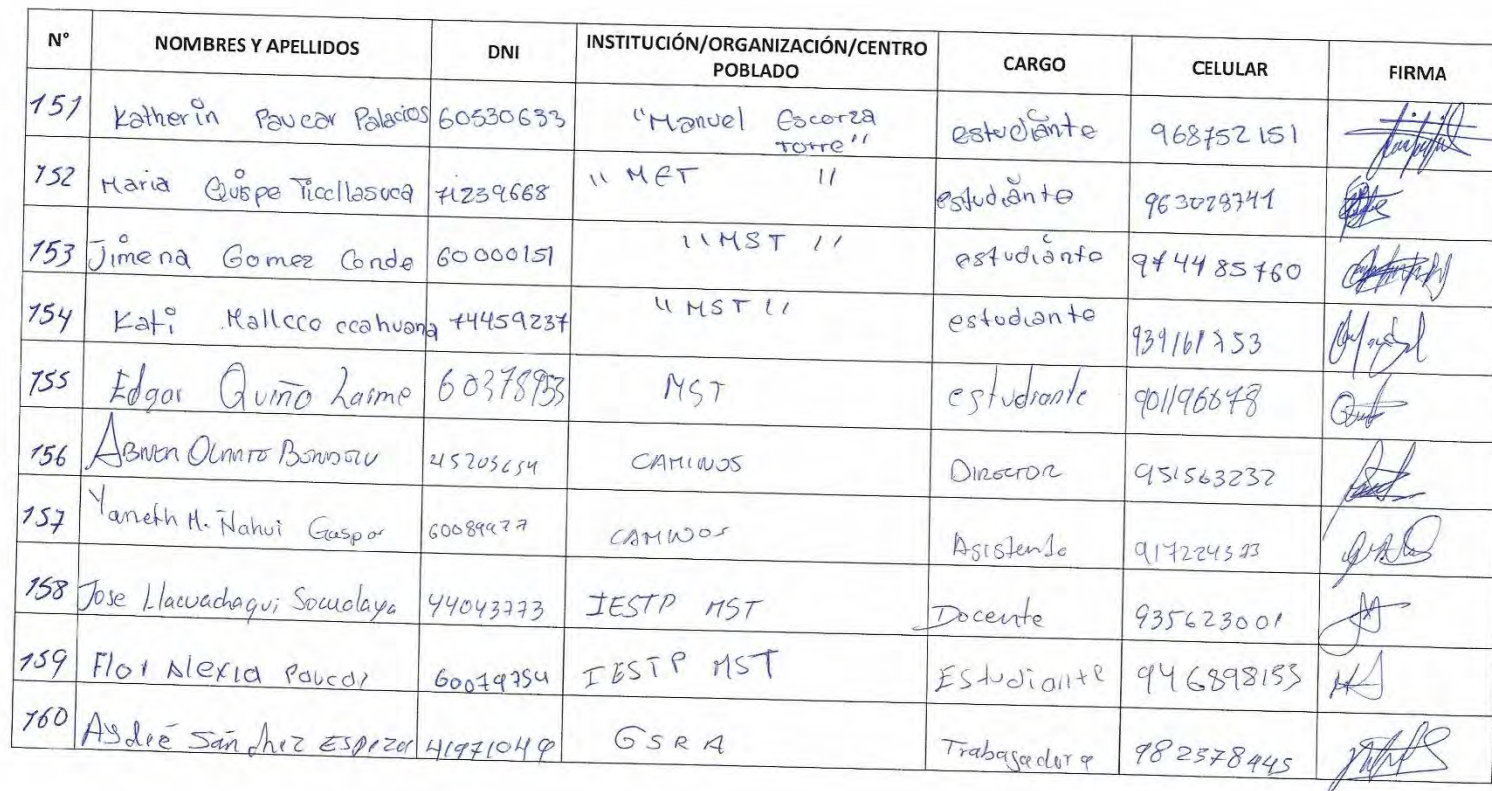 N° NOMBRES Y APELLIDOS DNI INSTITUCIÓN/ORGANIZACIÓN/CENTRO POBLADO CARGO CELULAR FIRMA
151 Katherin Paucar Palacios 60530633 "Manuel Escorza Torre" estudiante 968752151
152 Maria Quispe Ticcllasuca 71239668 "MET" estudiante 963028741
153 Jimena Gomez Conde 60000151 "MST" estudiante 974485760
154 Kati Mallcco ccahuana 74459237 "MST" estudiante
155 Edgar Quiño Laime 60378953 MST estudiante 901196678
156 CAMINOS DIRECTOR 951563232
157 Yaneth M. Ñahui Gaspar CAMINOS Asistente
158 Jose Llacuachaqui Socualaya 44043773 IESTP MST Docente 935623001
159 Flor Alexia Paucar 60079754 IESTP MST Estudiante 946898153
160 Sánchez Espeza 41971049 GSRA Trabajadora 982578445